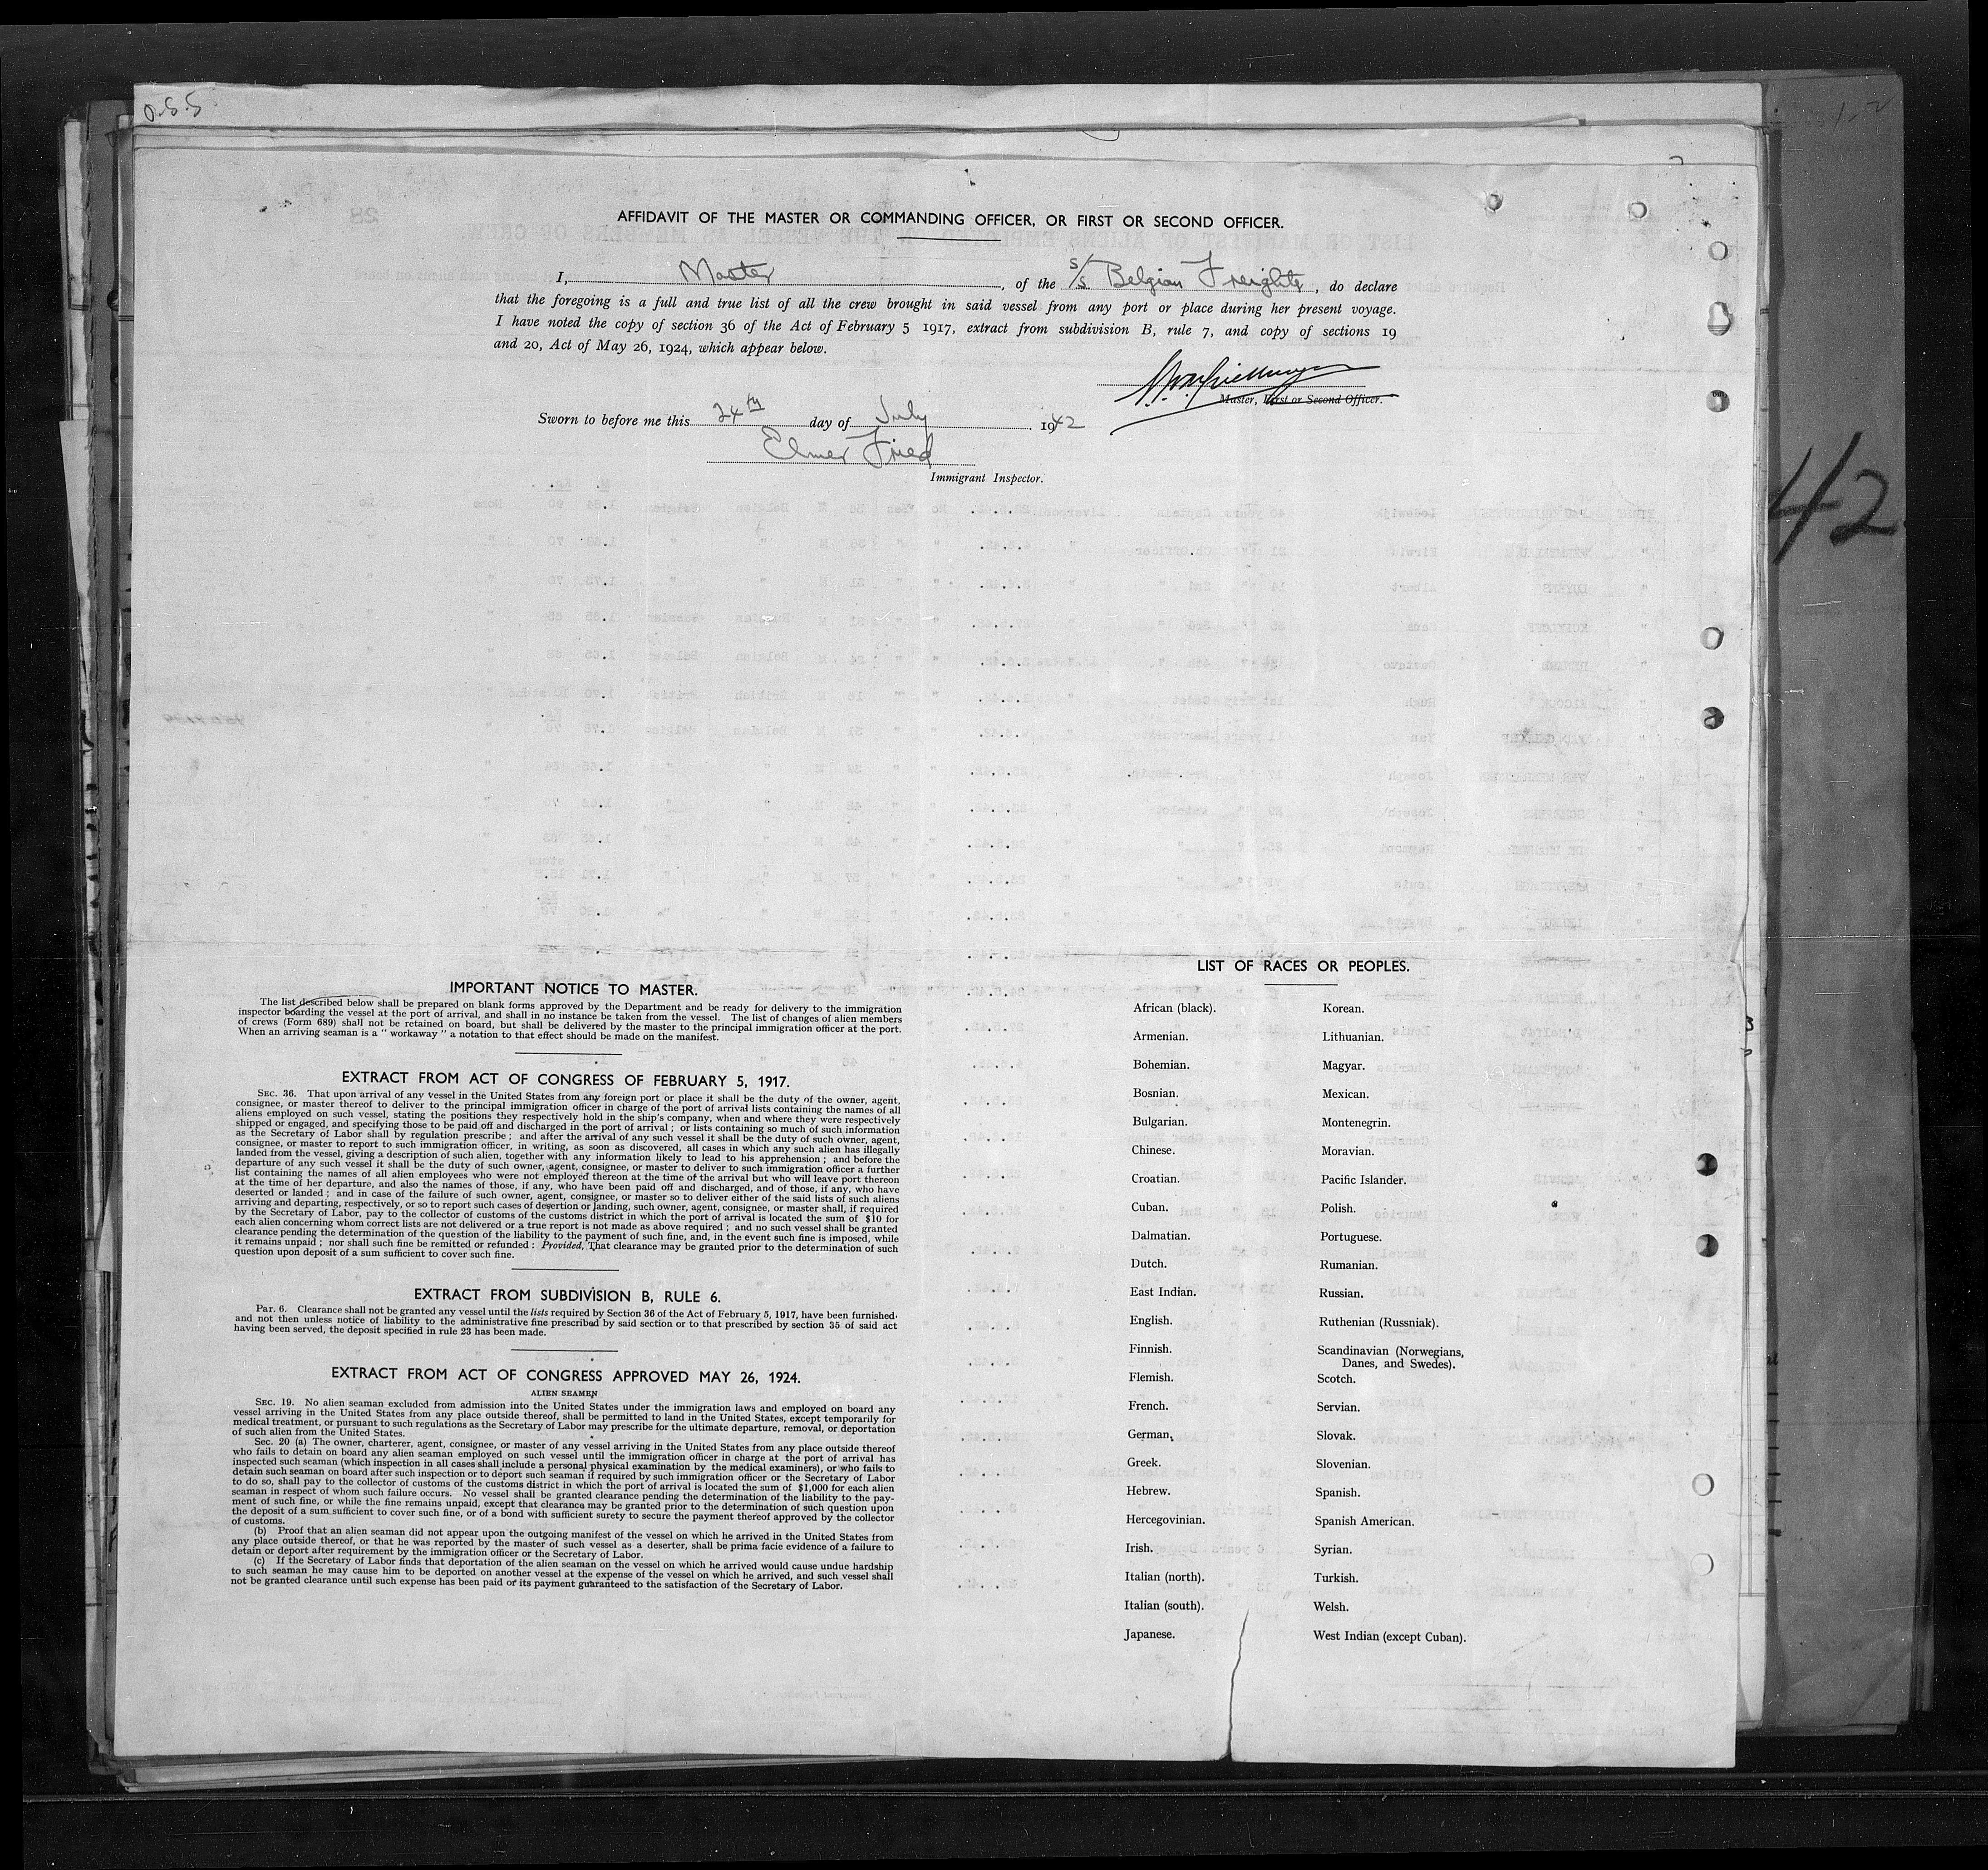 AFFIDAVIT OF THE MASTER OR COMMANDING OFFICER, OR FIRST OR SECOND OFFICER.
I, Master, of the S/S Belgian Freighter, do declare
that the foregoing is a full and true list of all the crew brought in said vessel from any port or place during her present voyage.
I have noted the copy of section 36 of the Act of February 5 1917, extract from subdivision B, rule 7, and copy of sections 19
and 20, Act of May 26, 1924, which appear below.
Master, First or Second Officer.
Sworn to before me this 24th day of July. 1942
Elmer Fried
Immigrant Inspector.
42
IMPORTANT NOTICE TO MASTER.
The list described below shall be prepared on blank forms approved by the Department and be ready for delivery to the immigration
inspector boarding the vessel at the port of arrival, and shall in no instance be taken from the vessel. The list of changes of alien members
of crews (Form 689) shall not be retained on board, but shall be delivered by the master to the principal immigration officer at the port.
When an arriving seaman is a " workaway " a notation to that effect should be made on the manifest.
EXTRACT FROM ACT OF CONGRESS OF FEBRUARY 5, 1917.
SEC. 36. That upon arrival of any vessel in the United States from any foreign port or place it shall be the duty of the owner, agent,
consignee, or master thereof to deliver to the principal immigration officer in charge of the port of arrival lists containing the names of all
aliens employed on such vessel, stating the positions they respectively hold in the ship's company, when and where they were respectively
shipped or engaged, and specifying those to be paid off and discharged in the port of arrival ; or lists containing so much of such information
as the Secretary of Labor shall by regulation prescribe ; and after the arrival of any such vessel it shall be the duty of such owner, agent,
consignee, or master to report to such immigration officer, in writing, as soon as discovered, all cases in which any such alien has illegally
landed from the vessel, giving a description of such alien, together with any information likely to lead to his apprehension ; and before the
departure of any such vessel it shall be the duty of such owner, agent, consignee, or master to deliver to such immigration officer a further
list containing the names of all alien employees who were not employed thereon at the time of the arrival but who will leave port thereon
at the time of her departure, and also the names of those, if any, who have been paid off and discharged, and of those, if any, who have
deserted or landed ; and in case of the failure of such owner, agent, consignee, or master so to deliver either of the said lists of such aliens
arriving and departing, respectively, or so to report such cases of desertion or landing, such owner, agent, consignee, or master shall, if required
by the Secretary of Labor, pay to the collector of customs of the customs district in which the port of arrival is located the sum of $10 for
each alien concerning whom correct lists are not delivered or a true report is not made as above required ; and no such vessel shall be granted
clearance pending the determination of the question of the liability to the payment of such fine, and, in the event such fine is imposed, while
it remains unpaid ; nor shall such fine be remitted or refunded : Provided, That clearance may be granted prior to the determination of such
question upon deposit of a sum sufficient to cover such fine.
EXTRACT FROM SUBDIVISION B, RULE 6.
Par. 6. Clearance shall not be granted any vessel until the lists required by Section 36 of the Act of February 5, 1917, have been furnished.
and not then unless notice of liability to the administrative fine prescribed by said section or to that prescribed by section 35 of said act
having been served, the deposit specified in rule 23 has been made.
EXTRACT FROM ACT OF CONGRESS APPROVED MAY 26, 1924.
ALIEN SEAMEN
SEC. 19. No alien seaman excluded from admission into the United States under the immigration laws and employed on board any
vessel arriving in the United States from any place outside thereof, shall be permitted to land in the United States, except temporarily for
medical treatment, or pursuant to such regulations as the Secretary of Labor may prescribe for the ultimate departure, removal, or deportation
of such alien from the United States.
Sec. 20 (a) The owner, charterer, agent, consignee, or master of any vessel arriving in the United States from any place outside thereof
who fails to detain on board any alien seaman employed on such vessel until the immigration officer in charge at the port of arrival has
inspected such seaman (which inspection in all cases shall include a personal physical examination by the medical examiners), or who fails to
detain such seaman on board after such inspection or to deport such seaman if required by such immigration officer or the Secretary of Labor
to do so, shall pay to the collector of customs of the customs district in which the port of arrival is located the sum of $1,000 for each alien
seaman in respect of whom such failure occurs. No vessel shall be granted clearance pending the determination of the liability to the pay-
ment of such fine, or while the fine remains unpaid, except that clearance may be granted prior to the determination of such question upon
the deposit of a sum sufficient to cover such fine, or of a bond with sufficient surety to secure the payment thereof approved by the collector
of customs.
(b) Proof that an alien seaman did not appear upon the outgoing manifest of the vessel on which he arrived in the United States from
any place outside thereof, or that he was reported by the master of such vessel as a deserter, shall be prima facie evidence of a failure to
detain or deport after requirement by the immigration officer or the Secretary of Labor.
(c) If the Secretary of Labor finds that deportation of the alien seaman on the vessel on which he arrived would cause undue hardship
to such seaman he may cause him to be deported on another vessel at the expense of the vessel on which he arrived, and such vessel shall
not be granted clearance until such expense has been paid or its payment guaranteed to the satisfaction of the Secretary of Labor.
LIST OF RACES OR PEOPLES.
African (black).
Armenian.
Bohemian.
Bosnian.
Bulgarian.
Chinese.
Croatian.
Cuban.
Dalmatian.
Dutch.
East Indian.
English.
Finnish.
Flemish.
French.
German.
Greek.
Hebrew.
Hercegovinian.
Irish.
Italian (north).
Italian (south).
Japanese.
Korean.
Lithuanian.
Magyar.
Mexican.
Montenegrin.
Moravian.
Pacific Islander.
Polish.
Portuguese.
Rumanian.
Russian.
Ruthenian (Russniak).
Scandinavian (Norwegians,
Danes, and Swedes).
Scotch.
Servian.
Slovak.
Slovenian.
Spanish.
Spanish American.
Syrian.
Turkish.
Welsh.
West Indian (except Cuban).